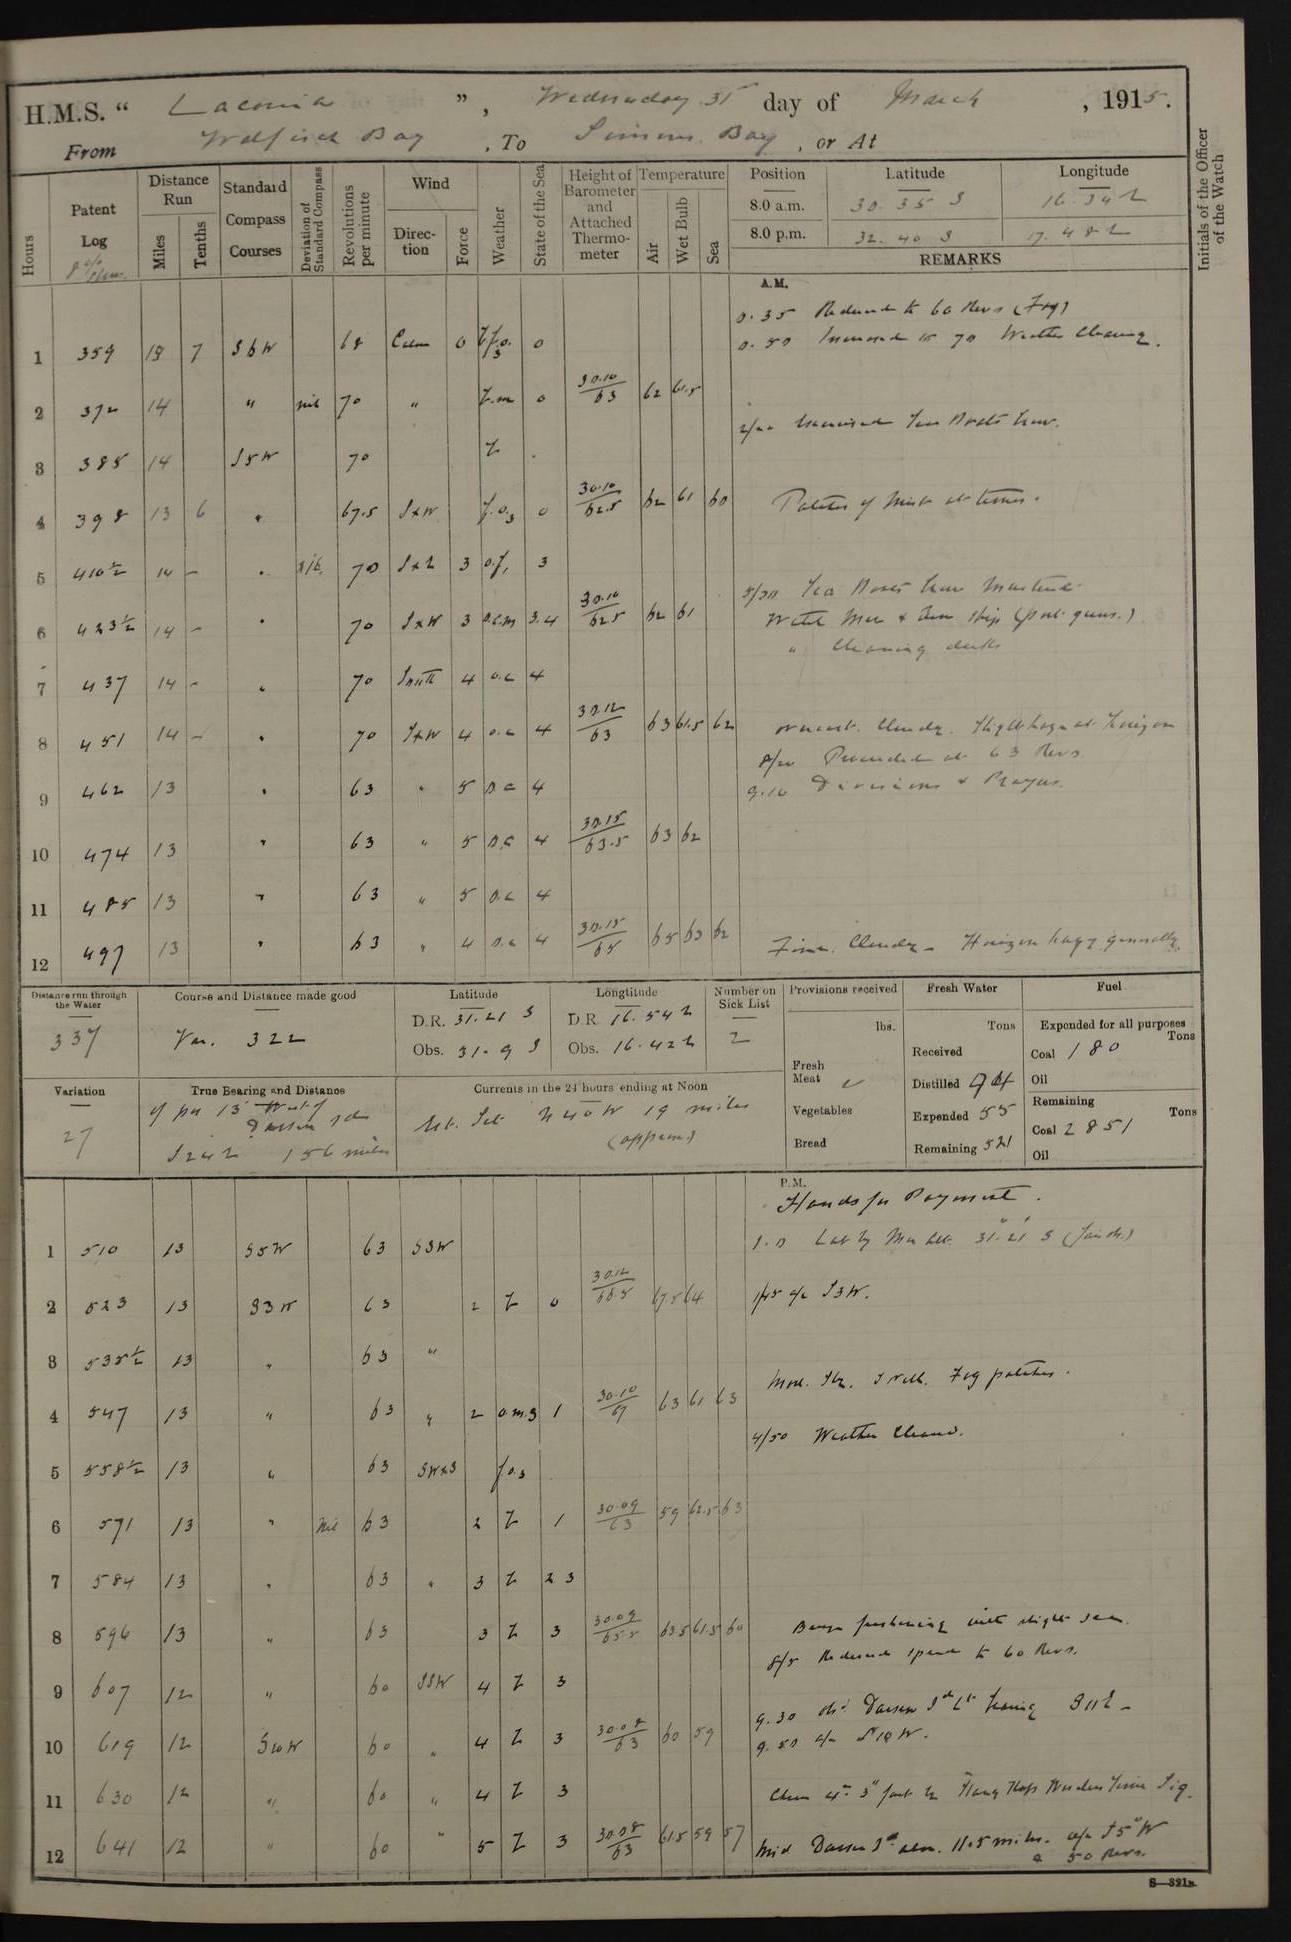 H.M.S. “ Laconia ”, Wednesday 31st day of March, 1915.
From Walfisch Bay, To Simons Bay, or At
Hours
Patent Log
Distance Run
Miles Tenths
Standard Compass Courses
Deviation of Standard Compass
Revolutions per minute
Wind
Direction Force
Weather
State of the Sea
Height of Barometer and Attached Thermometer
Temperature
Air Wet Bulb Sea
Position Latitude Longitude
8.0 a.m. 30. 35 S 16. 34 E
8.0 p.m. 32. 40 S 17. 48 E
REMARKS
Initials of the Officer of the Watch
A.M.
0.35 Reduced to 60 Revs (Fog)
1 359 18 7 S6W 68 Calm 0 0
0.50 Increased to 70 Weather Clearing.
2 372 14 " nil 70 " b.m 0 30.10/63 62 61.5
3 385 14 S5W 70 b
4 398 13 6 " 67.5 SxW 0 30.10/62.5 62 61 60 Patches of Mist at times.
5 410½ 14 - " 70 SxE 3 3
6 423½ 14 - " 70 SxW 3 o.c.m 3.4 30.10/62.5 62 61
" Cleaning decks
7 437 14 - " 70 South 4 o.c 4
8 451 14 - " 70 SxW 4 o.c 4 30.12/63 63 61.5 62 overcast. Cloudy. Slight haze at horizon
Proceeded at 63 Revs
9 462 13 " 63 " 5 o.c 4 9.10 Divisions & Prayers.
10 474 13 " 63 " 5 o.c 4 30.15/63.5 63 62
11 485 13 " 63 " 5 o.c 4
12 497 13 " 63 " 4 o.c 4 30.15/65 65 63 62 Fine. Cloudy - Horizon hazy generally.
Distance run through the Water
337
Course and Distance made good
Var. 322
Latitude
D.R. 31. 21 S
Obs. 31. 9 S
Longtitude
D.R. 16. 54 E
Obs. 16. 42 E
Number on Sick List
2
Provisions received
lbs.
Fresh Meat
Vegetables
Bread
Fresh Water
Tons
Received
Distilled
Expended 55
Remaining 521
Fuel
Expended for all purposes
Tons
Coal 180
Oil
Remaining
Tons
Coal 2851
Oil
Variation
27
True Bearing and Distance
of pos 15' West of
Dassen Id
S24E 156 miles
Currents in the 24 hours ending at Noon
N40W 19 miles
(approx)
P.M.
Hands for Payment.
1 510 13 S5W 63 SSW
1.0 Lat by Mer Alt. 31° 21' S
2 523 13 S3W 63 2 b 0 1/45 a/c S3W.
3 535½ 13 " 63 "
Fog patches.
4 547 13 " 63 " 2 1 30.10/67 63 61 63
4/50 Weather Cleared.
5 558½ 13 " 63 SWxS
6 571 13 " Nil 63 2 b 1 30.09/63 59 62.5 63
7 584 13 " 63 " 3 b 2 3
8 596 13 " 63 3 b 3 63.5 61.5 60 Breeze freshening with slight sea.
8/5 Reduced speed to 60 Revs.
9 607 12 " 60 SSW 4 b 3
9.30 Obs. Dassen Id Lt bearing S11E -
10 619 12 S10W 60 " 4 b 3 30.08/63 60 59 9.50 a/c S10W.
11 630 12 " 60 " 4 b 3
12 641 12 " 60 " 5 b 3 30.08/63 61.5 59 57 Mid Dassen Id abm. 11.5 miles. a/c S5°W
& 50 Revs.